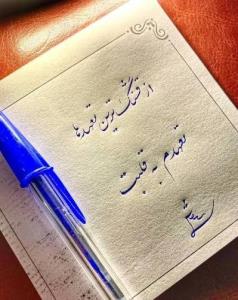 از قشنگ‌ترین تعهدها
تعهدم به قلبت